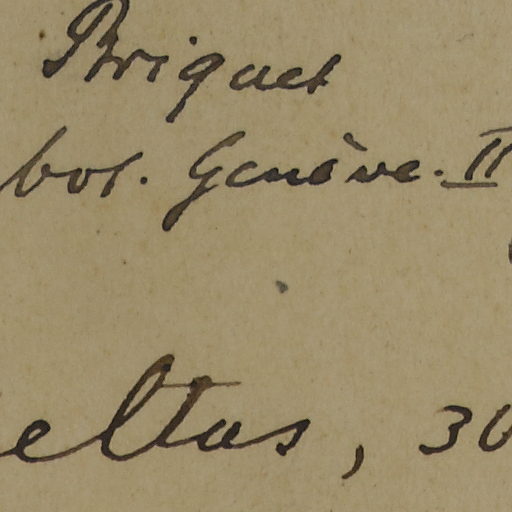 Briquet
bot. Genève. II
eltas, 30